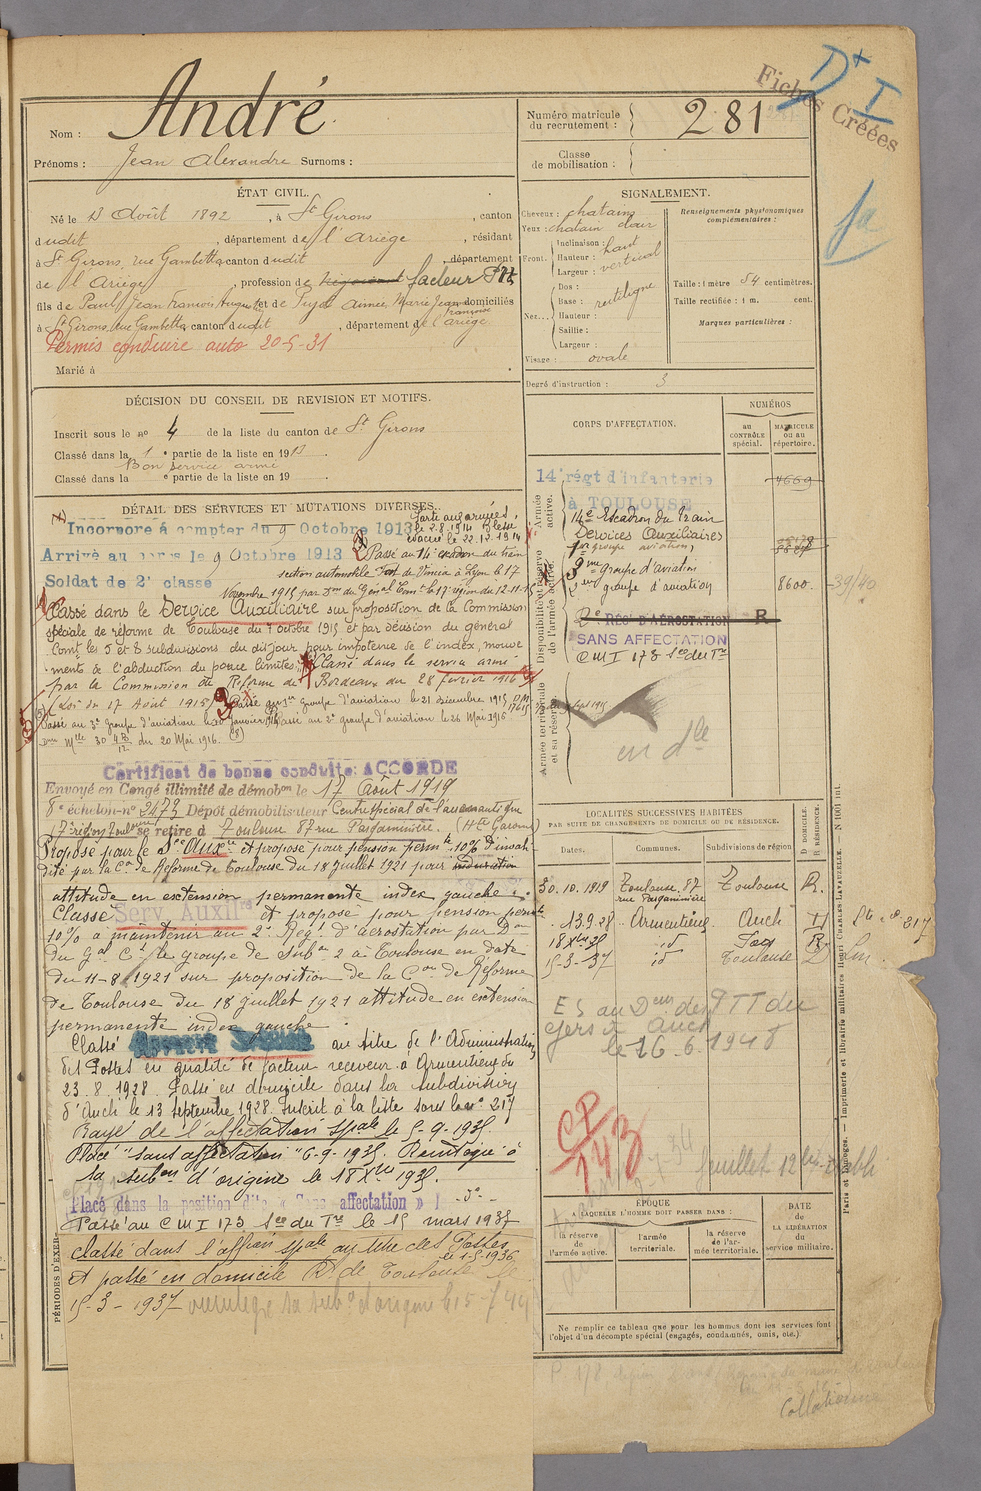 André
Nom :
Prénoms : Jean Alexandre Surnoms :
ÉTAT CIVIL.
Né le 13 Août 1892, à St Girons, canton
dudit, département de l'Ariège, résidant
à St Girons, rue Gambetta canton dudit, département
de l'Ariège, profession de négociant facteur PTT
fils de Paul, Jean François Auguste et de Pujol Aimée, Marie Jeanne Françoise domiciliés
à St Girons, rue Gambetta canton dudit, département de l'Ariège
Permis conduire auto 20-5-31
Marié à
DÉCISION DU CONSEIL DE REVISION ET MOTIFS.
Inscrit sous le no 4 de la liste du canton de St Girons
Classé dans la 1e partie de la liste en 1913.
Bon service armé
Classé dans la e partie de la liste en 19 .
DÉTAIL DES SERVICES ET MUTATIONS DIVERSES.
Incorporé à compter du 9 Octobre 1913
Parti aux armées,
le 2.8.1914 Blessé
évacué le 22.12.1914
Arrivé au corps le 9 Octobre 1913
Passé au 14e escadron du train
Soldat de 2e classé
section automobile Fort de Vincia à Lyon le 17
Novembre 1915 par du Gén al Comt le 17e région du 12-11-15
Classé dans le Service Auxiliaire sur proposition de la Commission
spéciale de réforme de Toulouse du 7 octobre 1915 et par décision du général
Comt les 5 et 8 subdivisions du dit jour pour impotence de l'index, mouve
ments de l'abduction du pouce limités. Classé dans le service armé
par la Commission de Réforme de Bordeaux du 28 février 1916
(Loi du 17 Août 1915) Passé au 1er groupe d'aviation le 21 décembre 1915
Passé au 3e groupe d'aviation le 20 janvier 1916 Passé au 2e groupe d'aviation le 26 Mai 1916
du 20 Mai 1916.
Certificat de bonne conduite: ACCORDÉ
Envoyé en Congé illimité de démobon le 17 Août 1919
8e échelon-no 2473 Dépôt démobilisateur Centre spécial de l'aéronautique
17e région Toulouse se retire à Toulouse 87 rue Pargaminière. (Hte Garonne)
Proposé pour le Sce Auxre et proposé pour pension permte 10% d'invali
dité par la Con de Réforme de Toulouse du 18 juillet 1921 pour induration
attitude en extension permanente index gauche.
Classé Serv. Auxilre et proposé pour pension permte
10% à maintenir au 2e Régt d'aérostation par Don
du Gal Ct le groupe de Subon 2 à Toulouse en date
du 11-8-1921 sur proposition de la Con de Réforme
de Toulouse du 18 juillet 1921 attitude en extension
permanente index gauche.
Classé Affecté Spécial au titre de l'Administration
des Postes en qualité de facteur receveur à Armentieux du
23.8.1928. Passé en domicile dans la subdivision
d'Auch le 13 septembre 1928. Inscrit à la liste sous le no 217
Rayé de l'affectation spale le 5-9-1935.
Placé "sans affectation" 6-9-1935. Réintégré à
sa subon d'origine le 18 Xbre 1935.
Placé dans la position dite « Sans affectation »
Passé au C M I 173 Son du Tre le 15 mars 1937
classé dans l'affon spale au titre des Postes
le 1-5-1936
et passé en domicile R. de Toulouse le
15-3-1937 réintégré sa subon d'origine le 15-
PÉRIODES D'EXER-
Numéro matricule
du recrutement :
281
Classe
de mobilisation :
Fiches Créées
D+ I
SIGNALEMENT.
Cheveux : chatains
Yeux : chatain clair
Front. Inclinaison : haut
Hauteur : vertical
Largeur :
Nez... Dos :
Base : rectiligne
Hauteur :
Saillie :
Largeur :
Visage : ovale
Renseignements physionomiques
complémentaires :
Taille : 1 mètre 54 centimètres.
Taille rectifiée : 1 m. cent.
Marques particulières :
Degré d'instruction : 3
CORPS D'AFFECTATION.
NUMÉROS
au
CONTRÔLE
spécial.
MATRICULE
ou au
répertoire.
Armée
active.
14e régt d'infanterie
à TOULOUSE
4669
14e Escadron du Train
Services Auxiliaires
1er groupe aviation,
3me groupe d'aviation
2me groupe d'aviation
8600
39/40
Disponibilité et réserve
de l'armée active.
2e RÉGt D'AÉROSTATION R
SANS AFFECTATION
C M I 173 Son du Tre
Armée territoriale
et sa réserve.
en dle
LOCALITÉS SUCCESSIVES HABITÉES
PAR SUITE DE CHANGEMENTS DE DOMICILE OU DE RÉSIDENCE.
Dates.
Communes.
Subdivisions de région
D DOMICILE.
R RÉSIDENCE.
30.10.1919 Toulouse. 87 rue Pargaminière Toulouse R.
13.9.28 Armentieux Auch D
18 Xbre 35 id Foix R
15-3-37 id Toulouse D
ES au Dem des PTT du
Gers à Auch
le 26.6.1948
CP
143
feuillet 12
ÉPOQUE
A LAQUELLE L'HOMME DOIT PASSER DANS :
la réserve
de
l'armée active.
l'armée
territoriale.
la réserve
de l'ar-
mée territoriale.
DATE
de
LA LIBÉRATION
du
service militaire.
Ne remplir ce tableau que pour les hommes dont les services font
l'objet d'un décompte spécial (engagés, condamnés, omis, etc.)
Paris et Limoges. — Imprimerie et librairie militaires Henri CHARLES-LAVAUZELLE.
Collationné